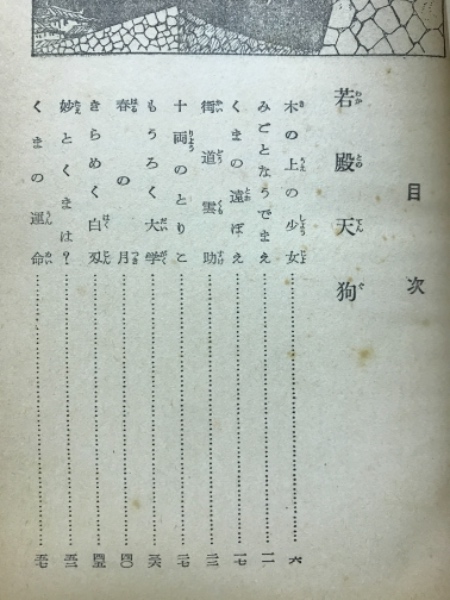 目次
若殿天狗
木の上の少女……六
みごとなうでまえ……一一
くまの遠ぼえ……一七
街道雲助……二二
十両のとりこ……二七
もうろく大学……三六
春の月……四〇
きらめく白刃……四五
妙とくまは?……五二
くまの運命……五七